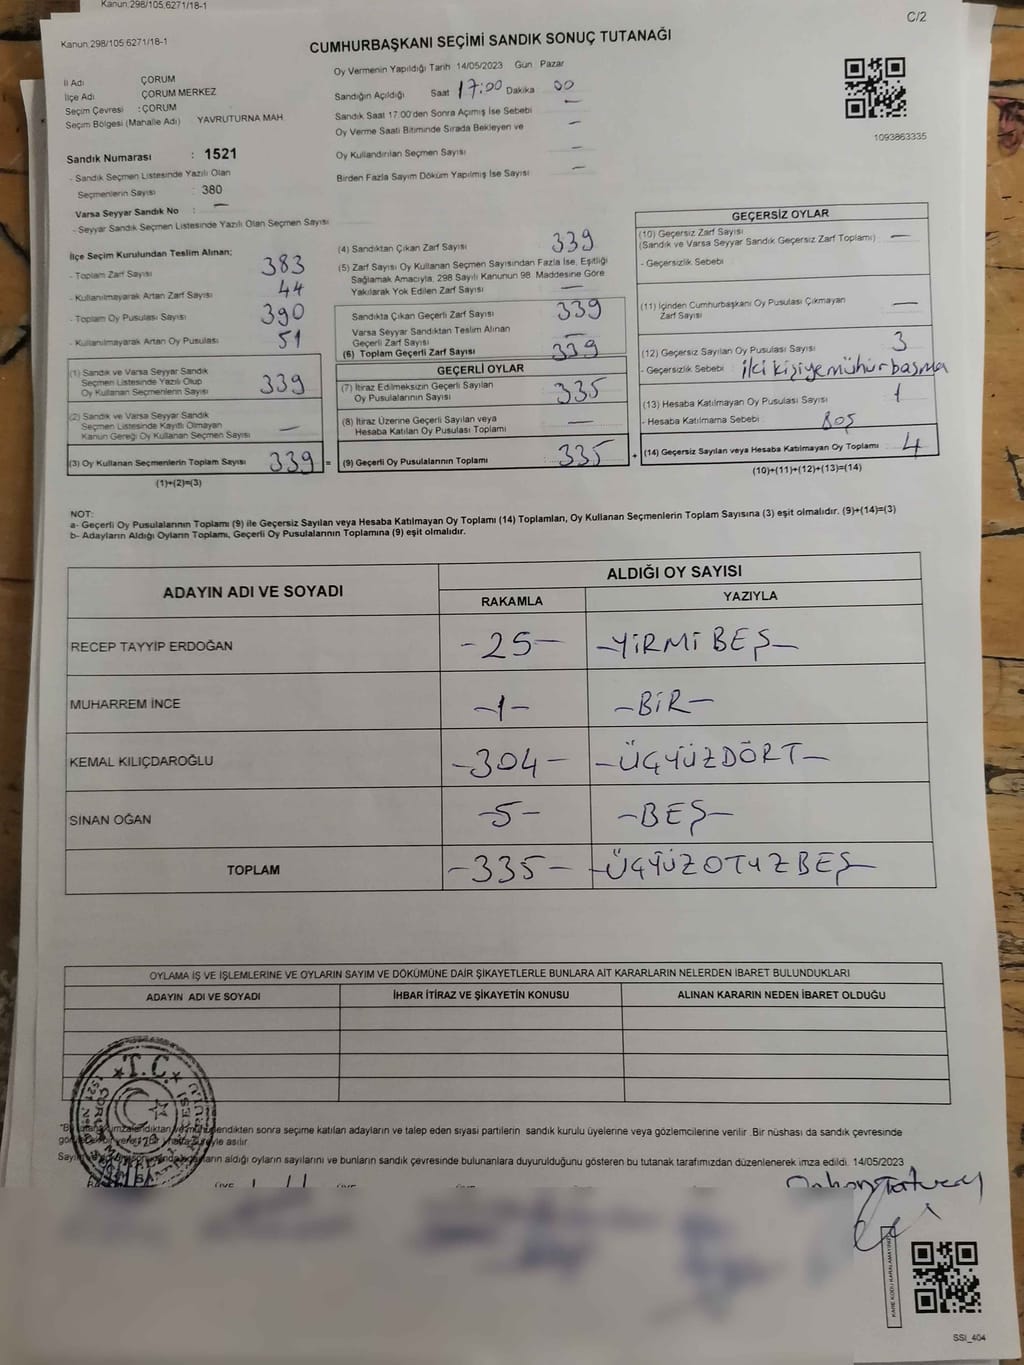 Kanun;298/105;6271/18-1
C/2
Kanun;298/105;6271/18-1
CUMHURBAŞKANI SEÇİMİ SANDIK SONUÇ TUTANAĞI
İl Adı ÇORUM
İlçe Adı ÇORUM MERKEZ
Seçim Çevresi : ÇORUM
Seçim Bölgesi (Mahalle Adı) YAVRUTURNA MAH.
Oy Vermenin Yapıldığı Tarih 14/05/2023 Gün Pazar
Sandığın Açıldığı Saat 17:00 Dakika 00
Sandık Saat 17.00'den Sonra Açımış İse Sebebi —
Oy Verme Saati Bitiminde Sırada Bekleyen ve —
Oy Kullandırılan Seçmen Sayısı —
Birden Fazla Sayım Döküm Yapılmış İse Sayısı —
1093863335
Sandık Numarası : 1521
- Sandık Seçmen Listesinde Yazılı Olan
Seçmenlerin Sayısı : 380
Varsa Seyyar Sandık No : —
- Seyyar Sandık Seçmen Listesinde Yazılı Olan Seçmen Sayısı
İlçe Seçim Kurulundan Teslim Alınan;
- Toplam Zarf Sayısı 383
- Kullanılmayarak Artan Zarf Sayısı 44
- Toplam Oy Pusulası Sayısı 390
- Kullanılmayarak Artan Oy Pusulası 51
(1) Sandık ve Varsa Seyyar Sandık
Seçmen Listesinde Yazılı Olup
Oy Kullanan Seçmenlerin Sayısı 339
(2) Sandık ve Varsa Seyyar Sandık
Seçmen Listesinde Kayıtlı Olmayan
Kanun Gereği Oy Kullanan Seçmen Sayısı —
(3) Oy Kullanan Seçmenlerin Toplam Sayısı 339 =
(1)+(2)=(3)
(4) Sandıktan Çıkan Zarf Sayısı 339
(5) Zarf Sayısı Oy Kullanan Seçmen Sayısından Fazla İse, Eşitliği
Sağlamak Amacıyla, 298 Sayılı Kanunun 98. Maddesine Göre
Yakılarak Yok Edilen Zarf Sayısı —
Sandıkta Çıkan Geçerli Zarf Sayısı 339
Varsa Seyyar Sandıktan Teslim Alınan
Geçerli Zarf Sayısı —
(6) Toplam Geçerli Zarf Sayısı 339
GEÇERLİ OYLAR
(7) İtiraz Edilmeksizin Geçerli Sayılan
Oy Pusulalarının Sayısı 335
(8) İtiraz Üzerine Geçerli Sayılan veya
Hesaba Katılan Oy Pusulası Toplamı —
(9) Geçerli Oy Pusulalarının Toplamı : 335 +
GEÇERSİZ OYLAR
(10) Geçersiz Zarf Sayısı —
(Sandık ve Varsa Seyyar Sandık Geçersiz Zarf Toplamı)
- Geçersizlik Sebebi
(11) İçinden Cumhurbaşkanı Oy Pusulası Çıkmayan —
Zarf Sayısı
(12) Geçersiz Sayılan Oy Pusulası Sayısı 3
- Geçersizlik Sebebi iki kişiye mühür basma
(13) Hesaba Katılmayan Oy Pusulası Sayısı 1
- Hesaba Katılmama Sebebi BOŞ
(14) Geçersiz Sayılan veya Hesaba Katılmayan Oy Toplamı 4
(10)+(11)+(12)+(13)=(14)
NOT:
a- Geçerli Oy Pusulalarının Toplamı (9) ile Geçersiz Sayılan veya Hesaba Katılmayan Oy Toplamı (14) Toplamları, Oy Kullanan Seçmenlerin Toplam Sayısına (3) eşit olmalıdır. (9)+(14)=(3)
b- Adayların Aldığı Oyların Toplamı, Geçerli Oy Pusulalarının Toplamına (9) eşit olmalıdır.
ADAYIN ADI VE SOYADI ALDIĞI OY SAYISI
RAKAMLA YAZIYLA
RECEP TAYYİP ERDOĞAN -25- -YİRMİ BEŞ-
MUHARREM İNCE -1- -BİR-
KEMAL KILIÇDAROĞLU -304- -ÜÇYÜZDÖRT-
SİNAN OĞAN -5- -BEŞ-
TOPLAM -335- -ÜÇYÜZOTUZBEŞ
OYLAMA İŞ VE İŞLEMLERİNE VE OYLARIN SAYIM VE DÖKÜMÜNE DAİR ŞİKAYETLERLE BUNLARA AİT KARARLARIN NELERDEN İBARET BULUNDUKLARI
ADAYIN ADI VE SOYADI İHBAR İTİRAZ VE ŞİKAYETİN KONUSU ALINAN KARARIN NEDEN İBARET OLDUĞU
T.C.
sonra seçime katılan adayların ve talep eden siyasi partilerin sandık kurulu üyelerine veya gözlemcilerine verilir. Bir nüshası da sandık çevresinde
asılır.
aldığı oyların sayılarını ve bunların sandık çevresinde bulunanlara duyurulduğunu gösteren bu tutanak tarafımızdan düzenlenerek imza edildi. 14/05/2023
KARE KODU KARALAMAYINIZ
SSI_404